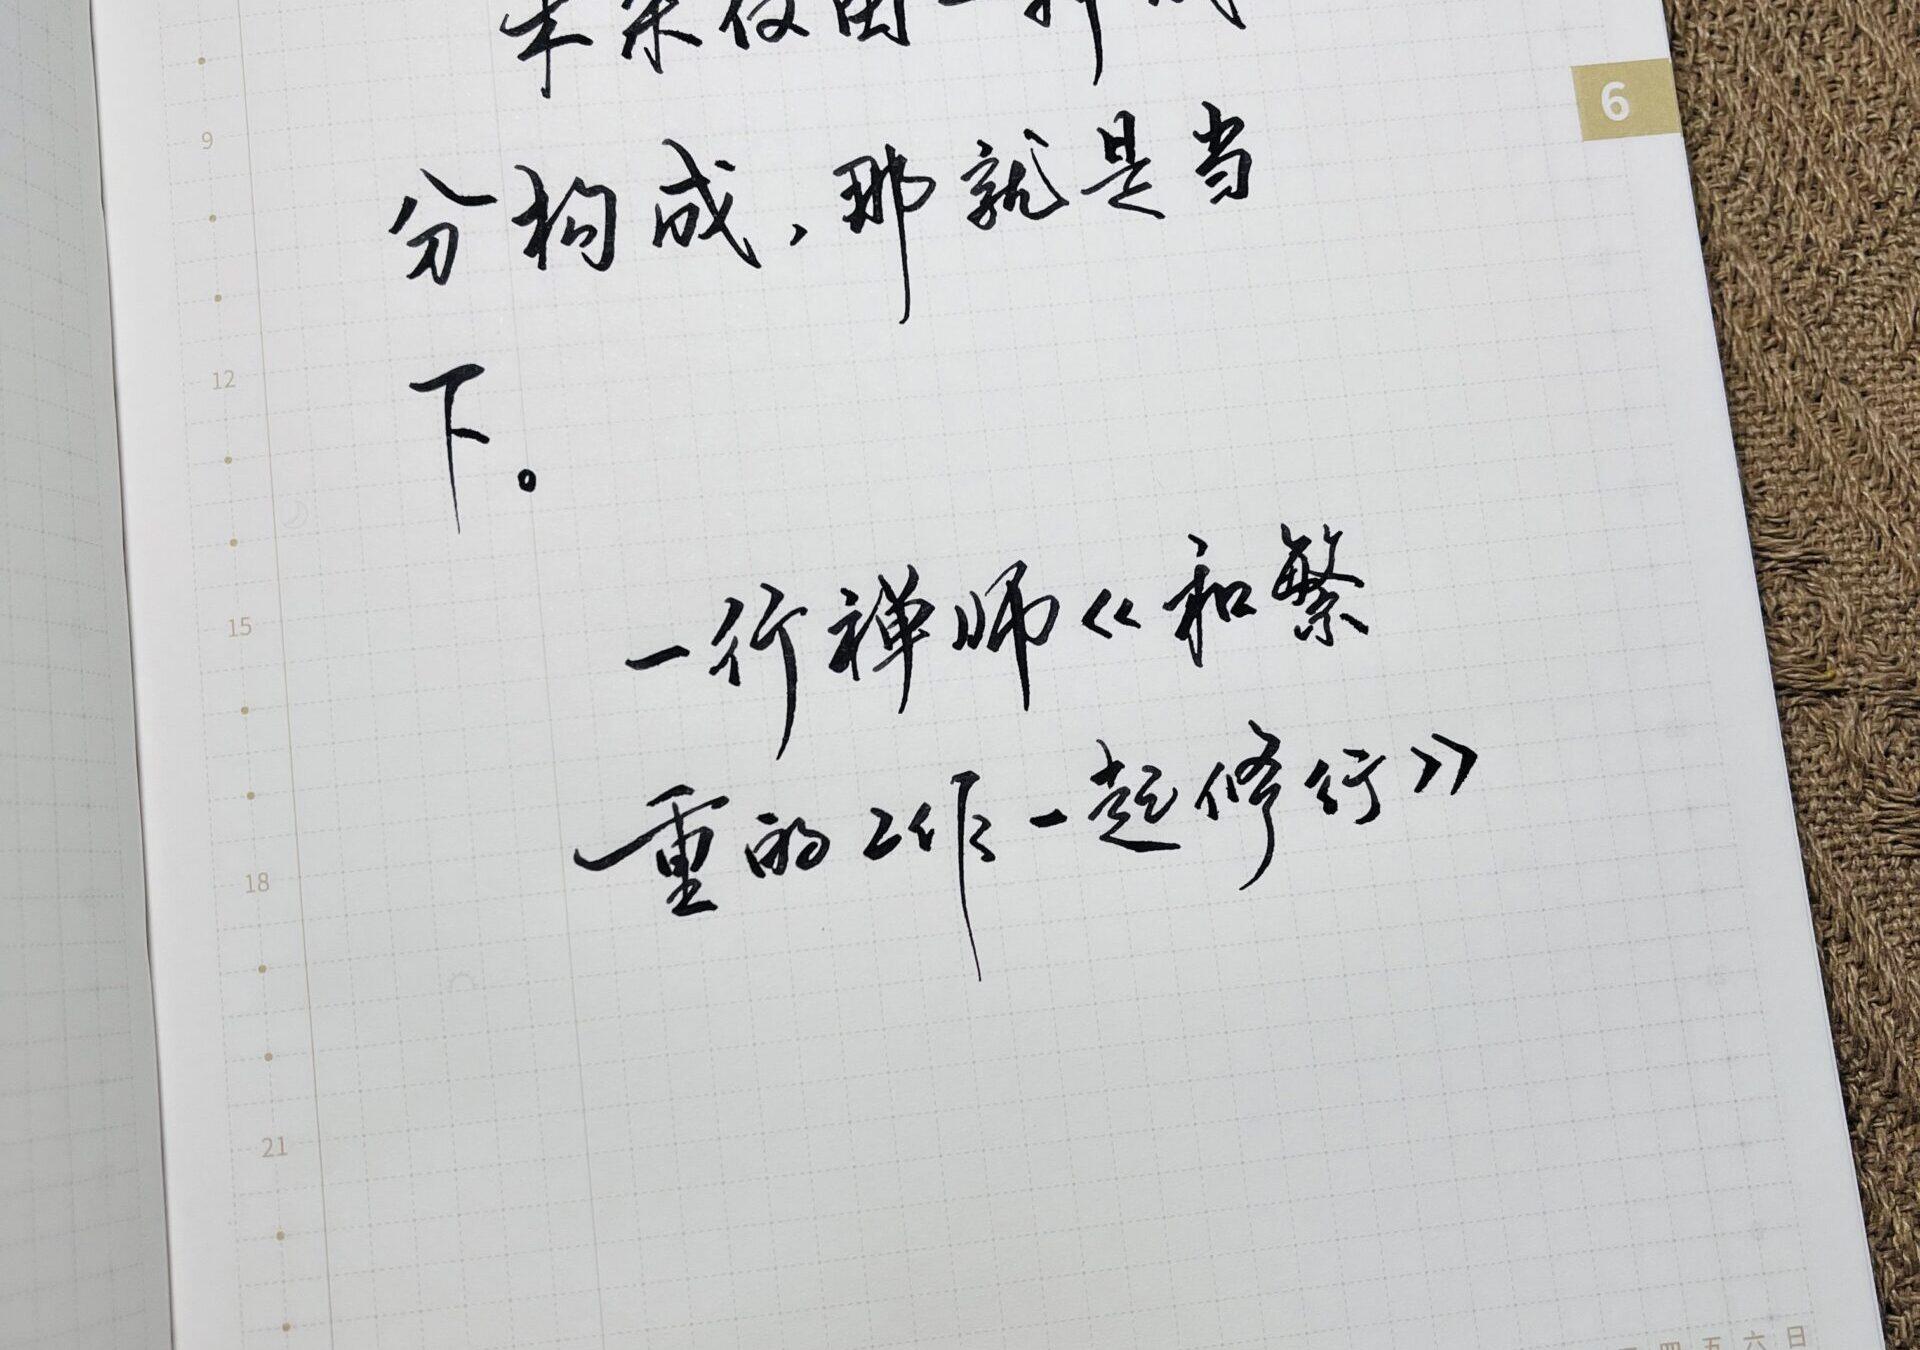 未来仅由一种成
6
9
分构成，那就是当
12
下。
15
一行禅师《和繁
重的工作一起修行》
18
21
四 五 六 日